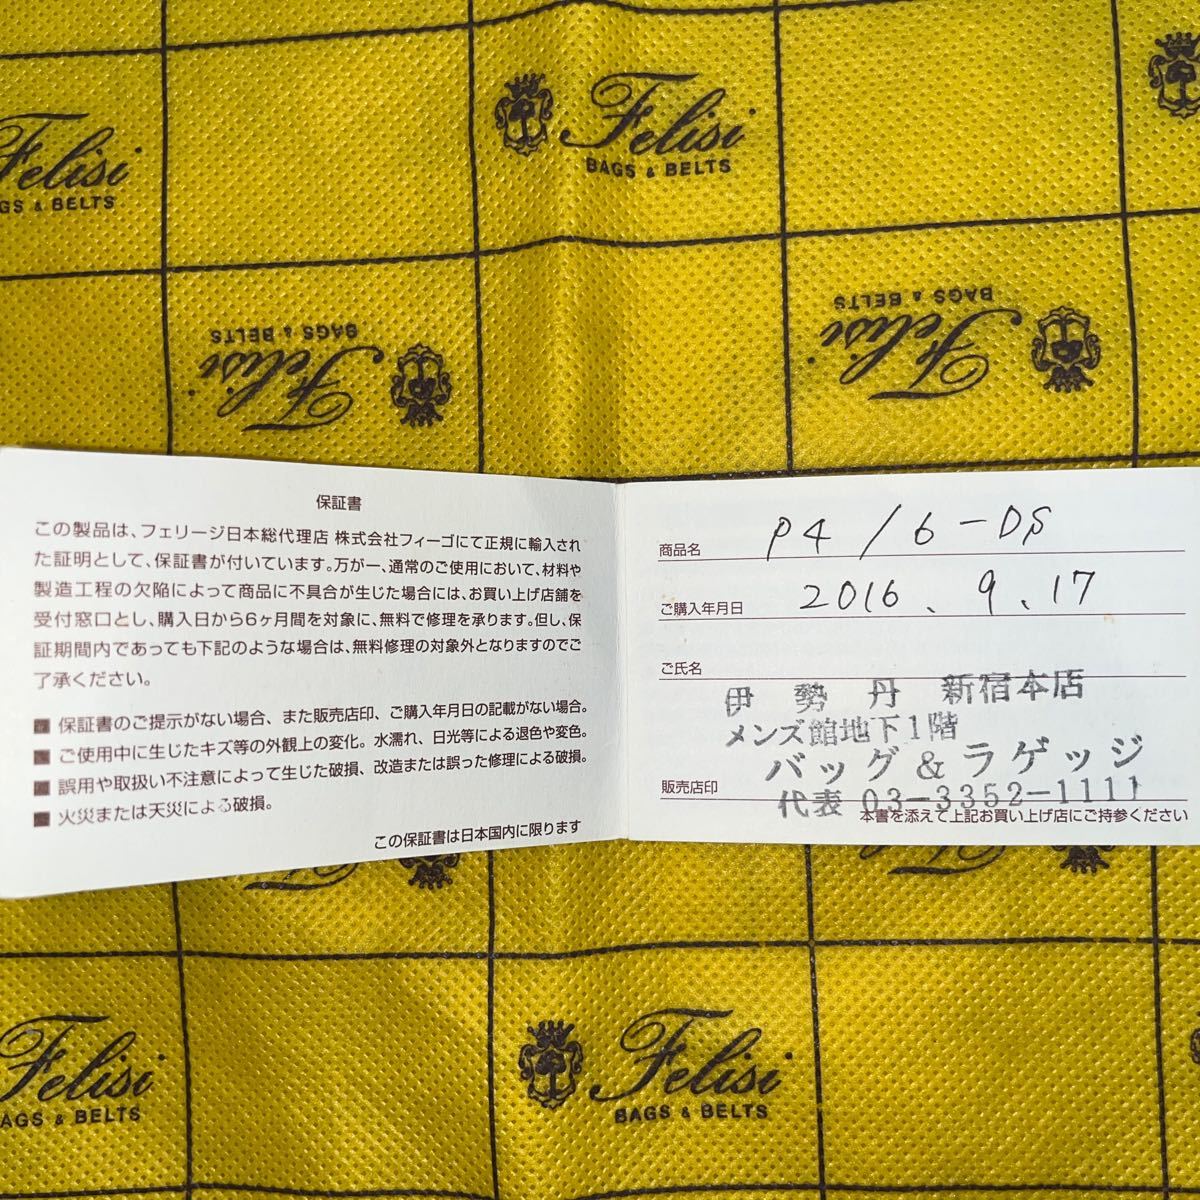 Felisi
BAGS & BELTS
Felisi
GS & BELTS
Felisi
BAGS & BELTS
Felisi
BAGS & BELTS
保証書
この製品は、フェリージ日本総代理店 株式会社フィーゴにて正規に輸入され
た証明として、保証書が付いています。万が一、通常のご使用において、材料や
製造工程の欠陥によって商品に不具合が生じた場合には、お買い上げ店舗を
受付窓口とし、購入日から6ヶ月間を対象に、無料で修理を承ります。但し、保
証期間内であっても下記のような場合は、無料修理の対象外となりますのでご
了承ください。
■ 保証書のご提示がない場合、また販売店印、ご購入年月日の記載がない場合。
■ ご使用中に生じたキズ等の外観上の変化。水濡れ、日光等による退色や変色。
■ 誤用や取扱い不注意によって生じた破損、改造または誤った修理による破損。
■ 火災または天災による破損。
この保証書は日本国内に限ります
商品名 P4 / 6-DS
ご購入年月日 2016. 9. 17
ご氏名
伊勢丹 新宿本店
メンズ館地下1階
バッグ&ラゲッジ
販売店印
代表 03-3352-1111
本書を添えて上記お買い上げ店にご持参ください
Felisi
AGS & BELTS
Felisi
BAGS & BELTS